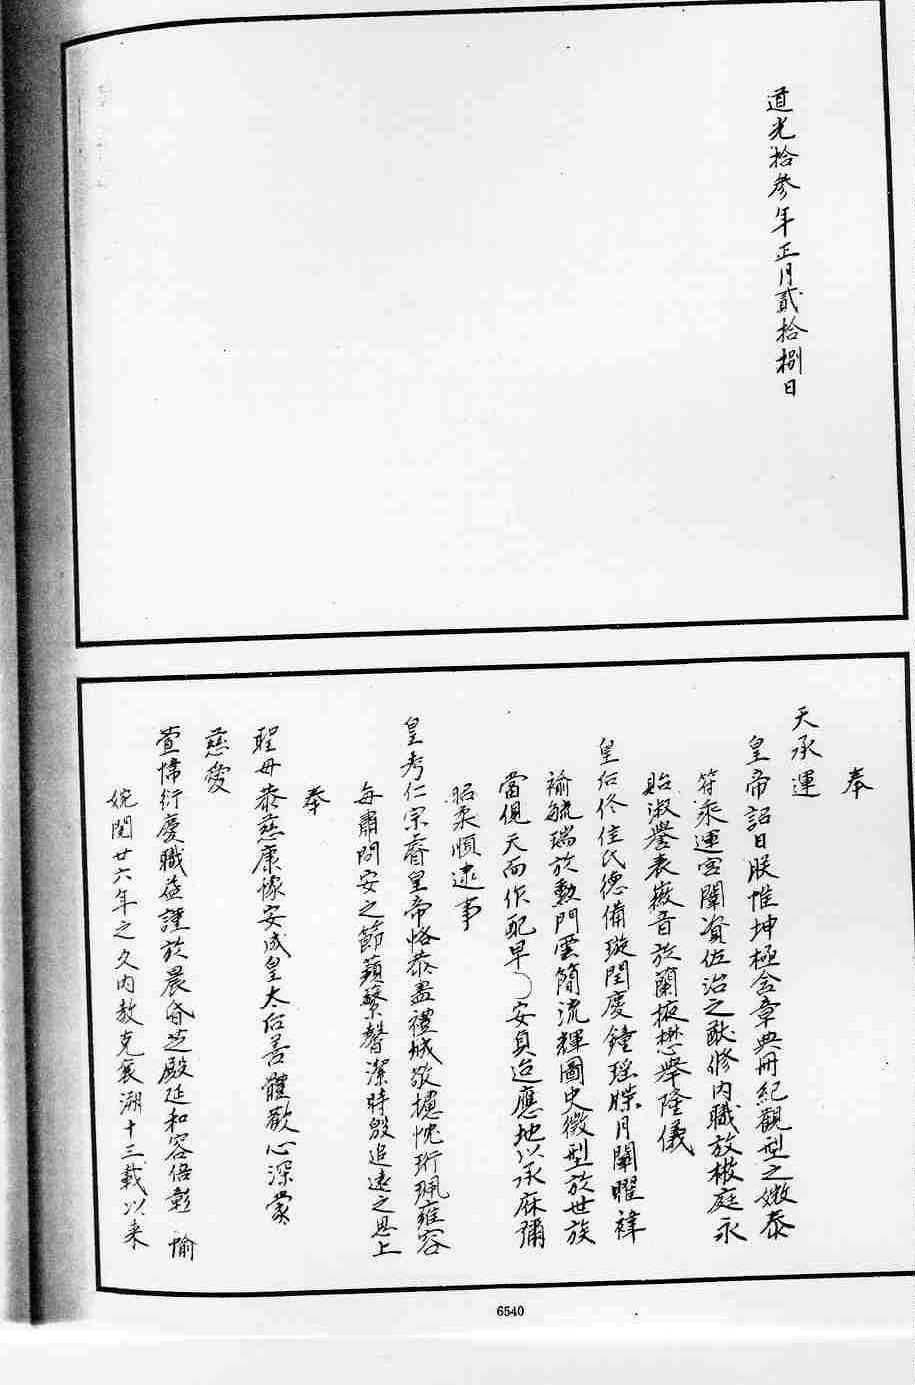 道光拾參年正月貳拾捌日
奉
天承運
皇帝詔曰朕惟坤極含章典冊紀觀型之媺泰
符乘運宮闈資佐治之猷修內職於椒庭永
貽淑譽表徽音於蘭掖懋舉隆儀
皇后佟佳氏德備璇閨慶鐘瑤牒月闈曜褘
褕毓瑞於勳門雲簡流輝圖史徵型於世族
當俔天而作配早 安貞迨應地以承庥彌
昭柔順逮事
皇考仁宗睿皇帝恪恭盡禮誠敬攄忱珩珮雍容
每肅問安之節蘋蘩馨潔時殷追遠之思上
奉
聖母恭慈康豫安成皇太后善體歡心深蒙
慈愛
萱幃衍慶職益謹於晨昏芝殿延和容倍彰 愉
婉閱廿六年之久內教克襄溯十三載以來
6540